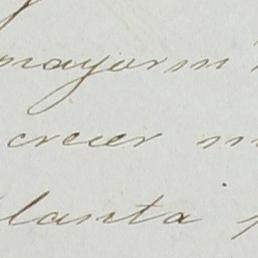 mayorm
creer m
planta p